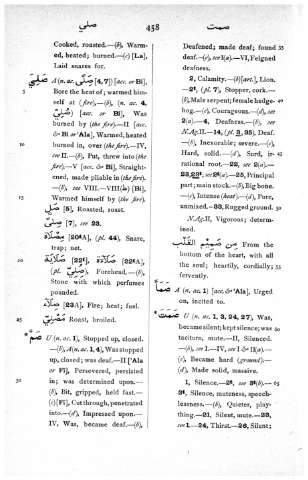 صلي 458 صمت
Cooked, roasted.—(b), Warm-
ed, heated; burned.—(c) [La],
Laid snares for.
صَلِيَ A (n. ac. [4,7]) [acc. or Bi],
Bore the heat of; warmed him-
self at (fire),—(b), (n. ac. 4,
[acc. or Bi], Was
burned by (the fire).—II [acc.
& Bi or 'Ala], Warmed, heated
burned in, over (the fire).—IV,
see II.—(b), Put, threw into (the
fire).—V [acc. or Bi], Straight-
ened, made pliable in (the fire).
—(b), see VIII.—VIII [Bi],
Warmed himself by (the fire).
[5], Roasted, roast.
[7], see 23.
[20tA], (pl. 44), Snare,
trap; net.
[22t], [22tA],
(pl. ), Forehead.—(b),
Stone with which perfumes
pounded.
[23A], Fire; heat; fuel.
Roast, broiled.
صَمَّ U (n. ac. 1), Stopped up, closed.
—(b), A (n. ac. 1, 4), Was stopped
up, closed; was deaf.—II ['Ala
or Fi], Persevered, persisted
in; was determined upon.—
(b), Bit, gripped, held fast.—
(c) [Fi], Cut through, penetrated
into.—(d), Impressed upon.—
IV, Was, became deaf.—(b),
Deafened; made deaf; found
deaf.—(c), see I (a).—VI, Feigned
deafness.
2, Calamity.—(b) [art.], Lion.
(pl. 7), Stopper, cork.—
(b), Male serpent; female hedge-
hog.—(c), Courageous.—(d), see
2 (a).—4, Deafness.—(b), see
N.Ag. II.—14, (pl. 35), Deaf.
—(b), Inexorable; severe.—(c),
Hard, solid.—(d), Sord, ir-
rational root.—22, see 2 (a).—
25, Principal
part; main stock.—(b), Big bone.
—(c), Intense (heat).—(d), Pure,
unmixed.—33, Rugged ground.
N.Ag. II, Vigorous; determ-
ined.
مِنْ صَمِيمِ القَلْبِ From the
bottom of the heart, with all
the soul; heartily, cordially;
fervently.
A (n. ac. 1) [acc. & 'Ala], Urged
on, incited to.
صَمَتَ U (n. ac. 1, 3, 24, 27), Was,
became silent; kept silence; was
taciturn, mute.—II, Silenced.
—(b), see I.—IV, see I & II (a).—
(c), Became hard (ground).—
(d), Made solid, massive.
1, Silence.
Silence, muteness, speech-
lessness.—(b), Quieter, play-
thing.—21, Silent, mute.—23,
see 1.—24, Thirst.—26, Silent;